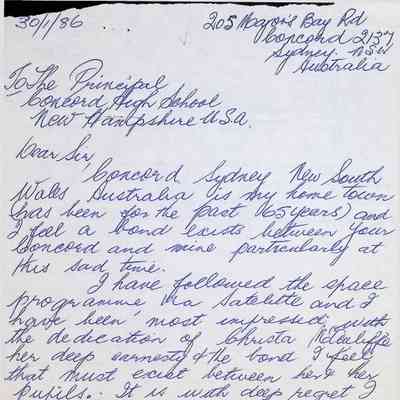 30/1/86
205 Majors Bay Rd
Concord 2137
Sydney. NSW
Australia
To The Principal
Concord High School
New Hampshire U.S.A.
Dear Sir,
Concord Sydney New South
Wales Australia is my home town
(has been for the past 65 years) and
I feel a bond exists between your
Concord and mine particularly at
this sad time.
I have followed the space
programme via Satellite and I
have been most impressed with
the dedication of Christa McAuliffe
her deep earnesty & the bond I feel
that must exist between her & her
pupils. It is with deep regret I